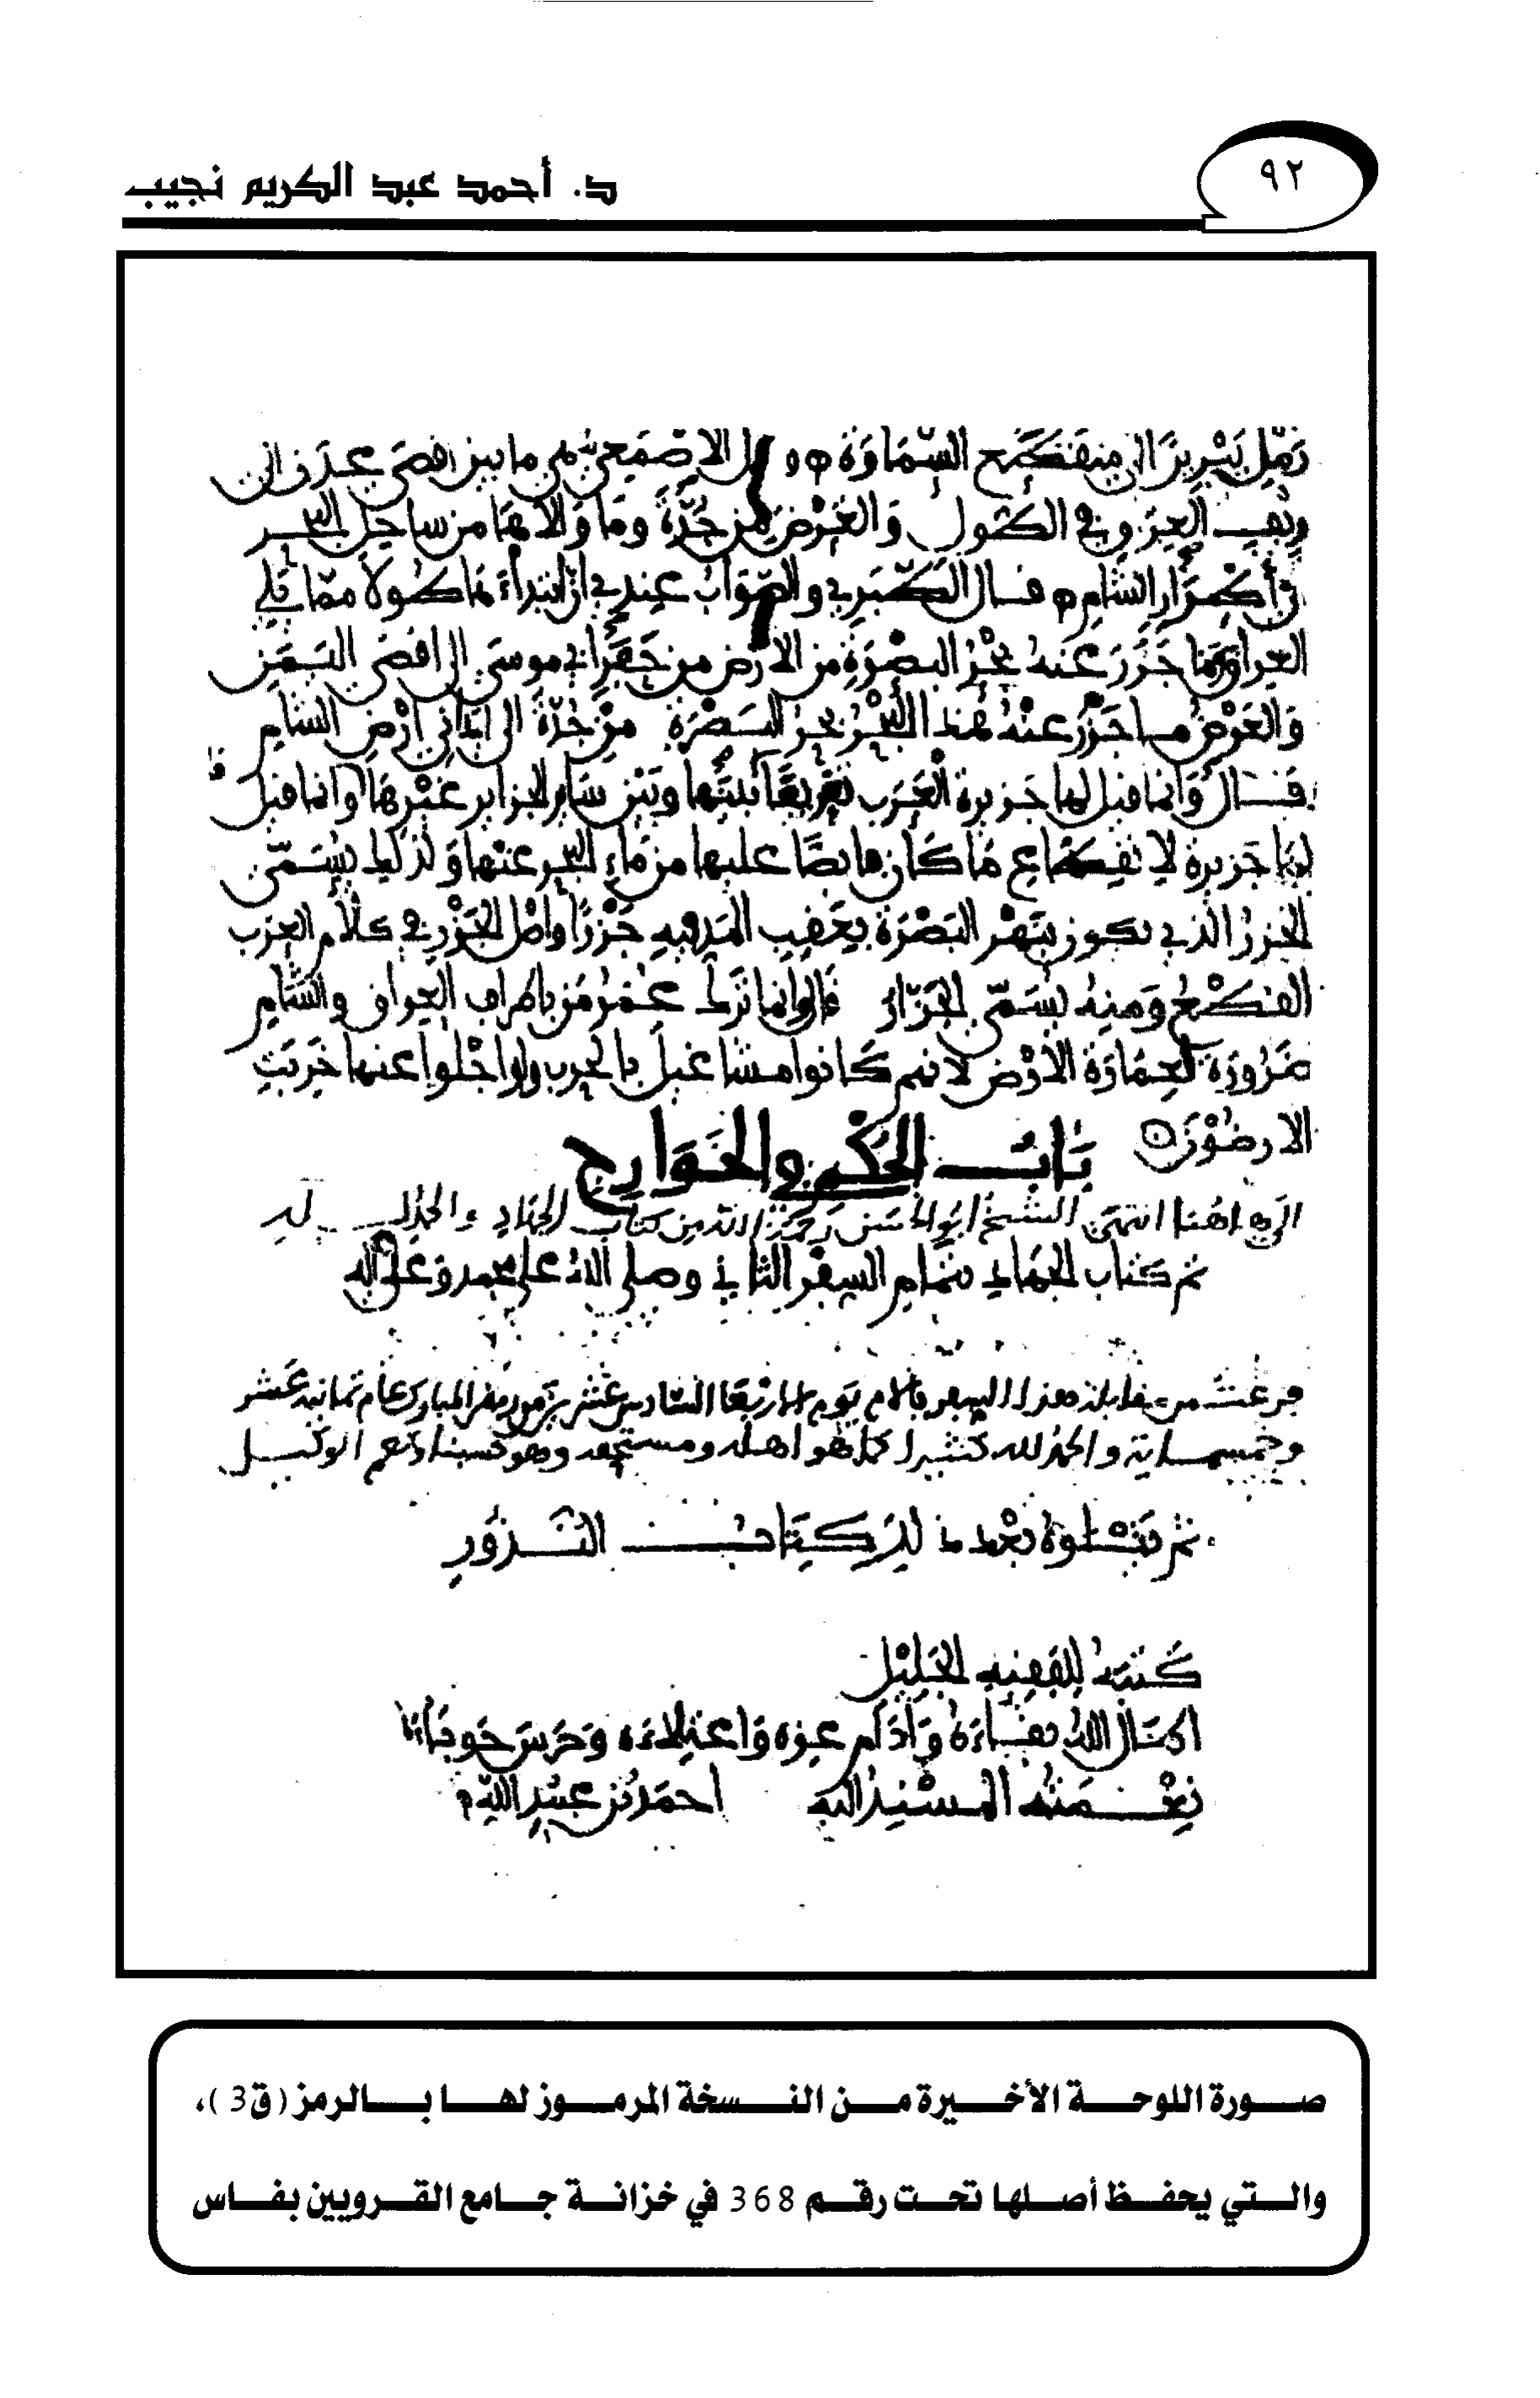 ٩٢
د. أحمد عبد الكريم نجيب
رمل يبرين الى منقطع السماوة وقال الاصمعي هي ما بين اقصى عدن ابين
وريف العراق في الطول والعرض من جدة وما والاها من ساحل البحر
الى أطرار الشام قال الطبري والصواب عندي ان ابتداءها طولا مما يلي
العراق مما جزر عنه بحر البصرة من الارض من حفر ابي موسى الى اقصى اليمن
والعرض ما جزر عنه هذا البحر بحر البصرة من جدة الى ارض الشام
قال وانما قيل لها جزيرة العرب تفريقا بينها وبين ساير الجزاير غيرها وانما قيل
لها جزيرة لانقطاع ما كان فايضا عليها من ماء البحر عنها ولذلك يسمى
الجزر الذي يكون بنهر البصرة بعقب المد فيه جزرا واصل الجزر في كلام العرب
القطع ومنه يسمى الجزار قالوا انما ترك عمر من باطراف العراق والشام
ضرورة لعمارة الارض لانهم كانوا مشاغيل بالحرب ولو اجلوا عنها خربت
الارضون
باب الحكم في الخوارج
الى هاهنا انتهى الشيخ ابو الحسن رحمه الله من كتاب الجهاد والحمد لله
تم كتاب الجهاد بتمام السفر الثاني وصلى الله على محمد وعلى آله
فرغت من مقابلة هذا السفر بالام يوم الاربعا السادس عشر من المبارك عام ثمانية عشر
وخمسماية والحمد لله كثيرا كما هو اهله ومستحقه وهو حسبنا ونعم الوكيل
يتلوه بعد كتاب النذور
كتبه للفقيه الجليل
اطال الله بقاءه وأدام عزه واعتلاءه وحرس حوباءه
نعمته المسند اليه احمد بن عبد الله
صورة اللوحة الأخيرة من النسخة المرموز لها بالرمز (ق3)،
والتي يحفظ أصلها تحت رقم 368 في خزانة جامع القرويين بفاس